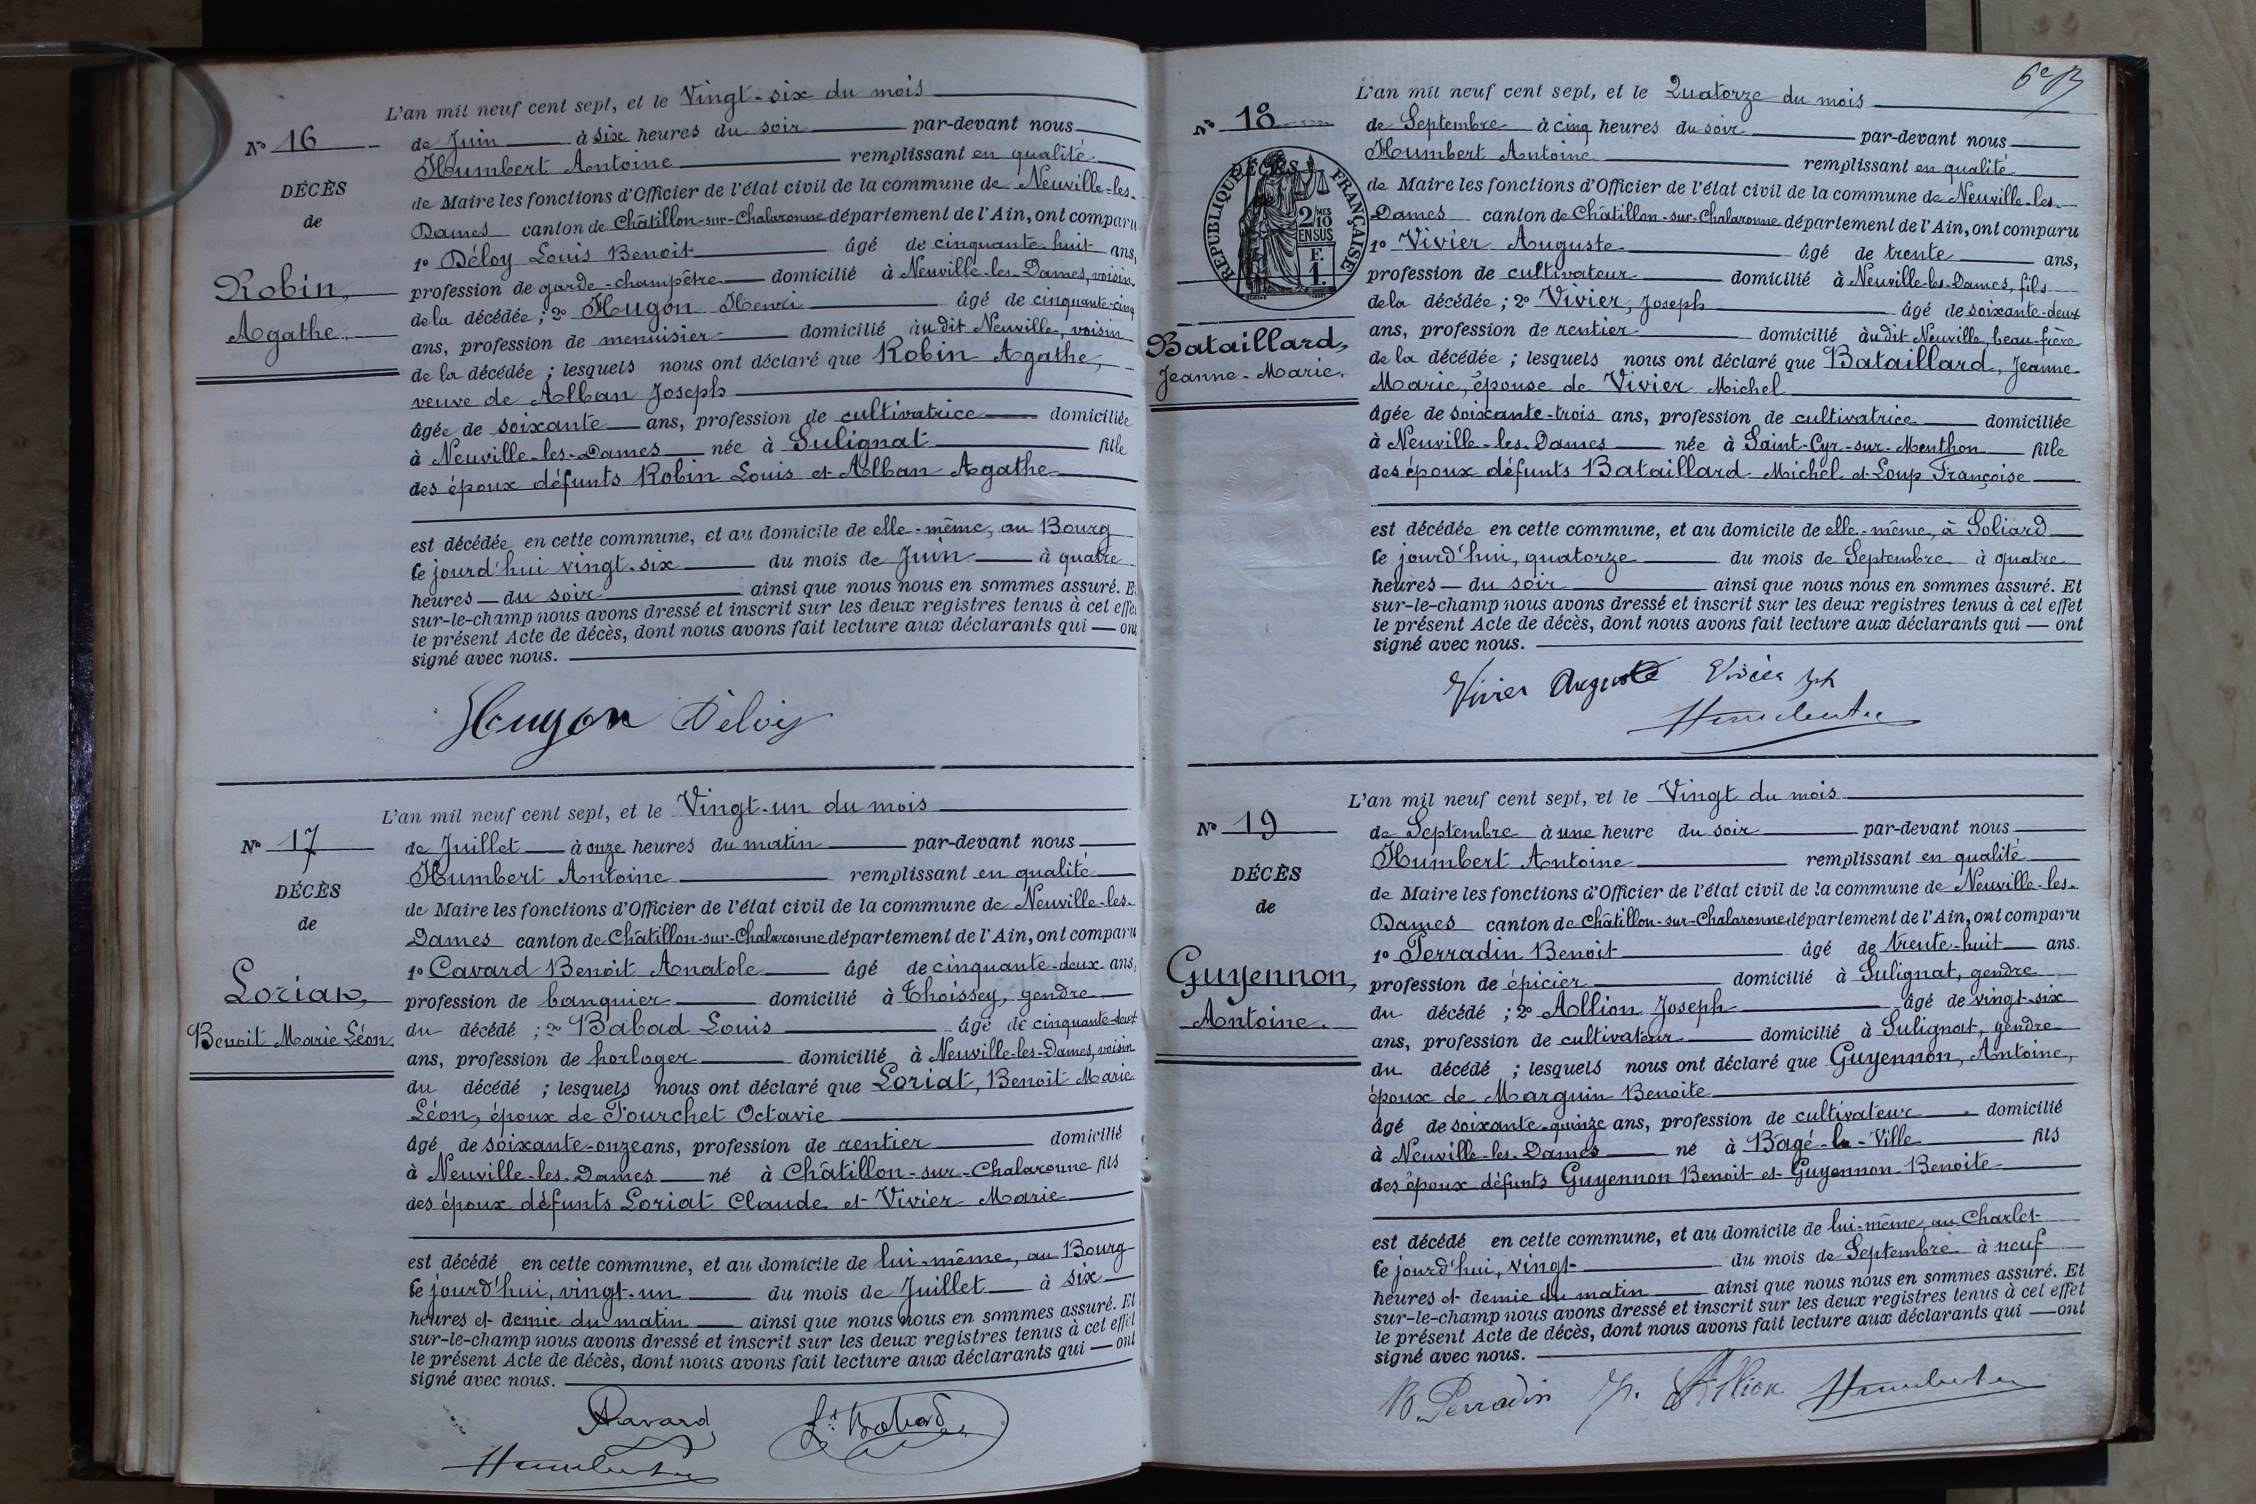 L'an mil neuf cent sept, et le Vingt-six du mois
No 16
de Juin à six heures du soir par-devant nous
Humbert Antoine remplissant en qualité
DÉCÈS
de Maire les fonctions d'Officier de l'état civil de la commune de Neuville-les-
de
Dames canton de Châtillon-sur-Chalaronne département de l'Ain, ont comparu
1o Déloy Louis Benoit âgé de cinquante-huit ans,
Robin,
profession de garde-champêtre domicilié à Neuville-les-Dames, voisin
de la décédée; 2o Hugon Henri âgé de cinquante-cinq
Agathe
ans, profession de menuisier domicilié àudit Neuville, voisin
de la décédée; lesquels nous ont déclaré que Robin Agathe,
veuve de Alban Joseph
âgée de soixante ans, profession de cultivatrice domiciliée
à Neuville-les-Dames née à Sulignat fille
des époux défunts Robin Louis et Alban Agathe
est décédée en cette commune, et au domicile de elle-même, au Bourg
le jourd'hui vingt-six du mois de Juin à quatre
heures du soir ainsi que nous nous en sommes assuré. Et
sur-le-champ nous avons dressé et inscrit sur les deux registres tenus à cel effet
le présent Acte de décès, dont nous avons fait lecture aux déclarants qui — ont
signé avec nous.
Hugon Déloy
L'an mil neuf cent sept, et le Vingt-un du mois
No 17
de Juillet à onze heures du matin par-devant nous
Humbert Antoine remplissant en qualité
DÉCÈS
de Maire les fonctions d'Officier de l'état civil de la commune de Neuville-les-
de
Dames canton de Châtillon-sur-Chalaronne département de l'Ain, ont comparu
1o Cavard Benoit Anatole âgé de cinquante-deux ans,
Loriat,
profession de banquier domicilié à Thoissey, gendre
du décédé; 2o Babad Louis âgé de cinquante-deux
Benoit Marie Léon
ans, profession de horloger domicilié à Neuville-les-Dames, voisin
du décédé; lesquels nous ont déclaré que Loriat, Benoit Marie
Léon, époux de Fourchet Octavie
âgé de soixante-onze ans, profession de rentier domicilié
à Neuville-les-Dames né à Châtillon-sur-Chalaronne fils
des époux défunts Loriat Claude et Vivier Marie
est décédé en cette commune, et au domicile de lui-même, au Bourg
le jourd'hui, vingt-un du mois de Juillet à six
heures et demie du matin ainsi que nous nous en sommes assuré. Et
sur-le-champ nous avons dressé et inscrit sur les deux registres tenus à cel effet
le présent Acte de décès, dont nous avons fait lecture aux déclarants qui — ont
signé avec nous.
Cavard Ls Babad
Humbert Ane
L'an mil neuf cent sept, et le Quatorze du mois
No 18
de Septembre à cinq heures du soir par-devant nous
Humbert Antoine remplissant en qualité
DÉCÈS
RÉPUBLIQUE FRANÇAISE
2/MES
10
EN SUS
F.
1.
de Maire les fonctions d'Officier de l'état civil de la commune de Neuville-les-
Dames canton de Châtillon-sur-Chalaronne département de l'Ain, ont comparu
1o Vivier Auguste âgé de trente ans,
profession de cultivateur domicilié à Neuville-les-Dames, fils
de la décédée; 2o Vivier, Joseph âgé de soixante-deux
Bataillard,
ans, profession de rentier domicilié àudit Neuville, beau-frère
Jeanne-Marie.
de la décédée; lesquels nous ont déclaré que Bataillard, Jeanne
Marie, épouse de Vivier Michel
âgée de soixante-trois ans, profession de cultivatrice domiciliée
à Neuville-les-Dames née à Saint-Cyr-sur-Menthon fille
des époux défunts Bataillard Michel et Loup Françoise
est décédée en cette commune, et au domicile de elle-même, à Soliard
le jourd'hui, quatorze du mois de Septembre à quatre
heures — du soir ainsi que nous nous en sommes assuré. Et
sur-le-champ nous avons dressé et inscrit sur les deux registres tenus à cel effet
le présent Acte de décès, dont nous avons fait lecture aux déclarants qui — ont
signé avec nous.
Vivier Auguste Vivier Jph
Humbert Ane
L'an mil neuf cent sept, et le Vingt du mois
No 19
de Septembre à une heure du soir par-devant nous
Humbert Antoine remplissant en qualité
DÉCÈS
de Maire les fonctions d'Officier de l'état civil de la commune de Neuville-les-
de
Dames canton de Châtillon-sur-Chalaronne département de l'Ain, ont comparu
1o Perradin Benoit âgé de trente-huit ans.
Guyennon,
profession de épicier domicilié à Sulignat, gendre
du décédé; 2o Allion Joseph âgé de vingt-six
Antoine.
ans, profession de cultivateur domicilié à Sulignat, gendre
du décédé; lesquels nous ont déclaré que Guyennon, Antoine,
époux de Marguin Benoite
âgé de soixante-quinze ans, profession de cultivateur domicilié
à Neuville-les-Dames né à Bâgé-la-Ville fils
des époux défunts Guyennon Benoit et Guyennon Benoite
est décédé en cette commune, et au domicile de lui-même, au Charlet
le jourd'hui, vingt du mois de Septembre à neuf
heures et demie du matin ainsi que nous nous en sommes assuré. Et
sur-le-champ nous avons dressé et inscrit sur les deux registres tenus à cel effet
le présent Acte de décès, dont nous avons fait lecture aux déclarants qui — ont
signé avec nous.
B. Perradin J. Allion Humbert Ane